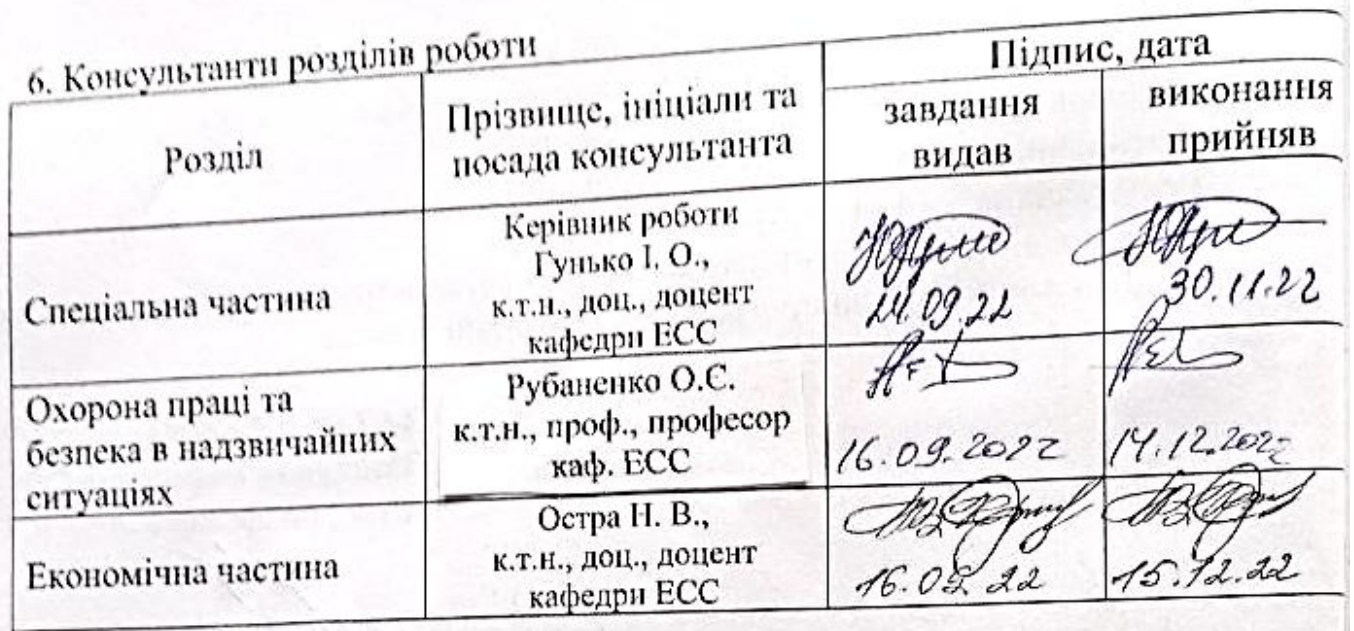 6. Консультанти розділів роботи
Розділ
Прізвище, ініціали та
посада консультанта
Підпис, дата
завдання
видав
виконання
прийняв
Спеціальна частина
Керівник роботи
Гунько І. О.,
к.т.н., доц., доцент
кафедри ЕСС
30.11.22
Охорона праці та
безпека в надзвичайних
ситуаціях
Рубаненко О.Є.
к.т.н., проф., професор
каф. ЕСС
16.09.2022
14.12.2022
Економічна частина
Остра Н. В.,
к.т.н., доц., доцент
кафедри ЕСС
16.09.22
15.12.22